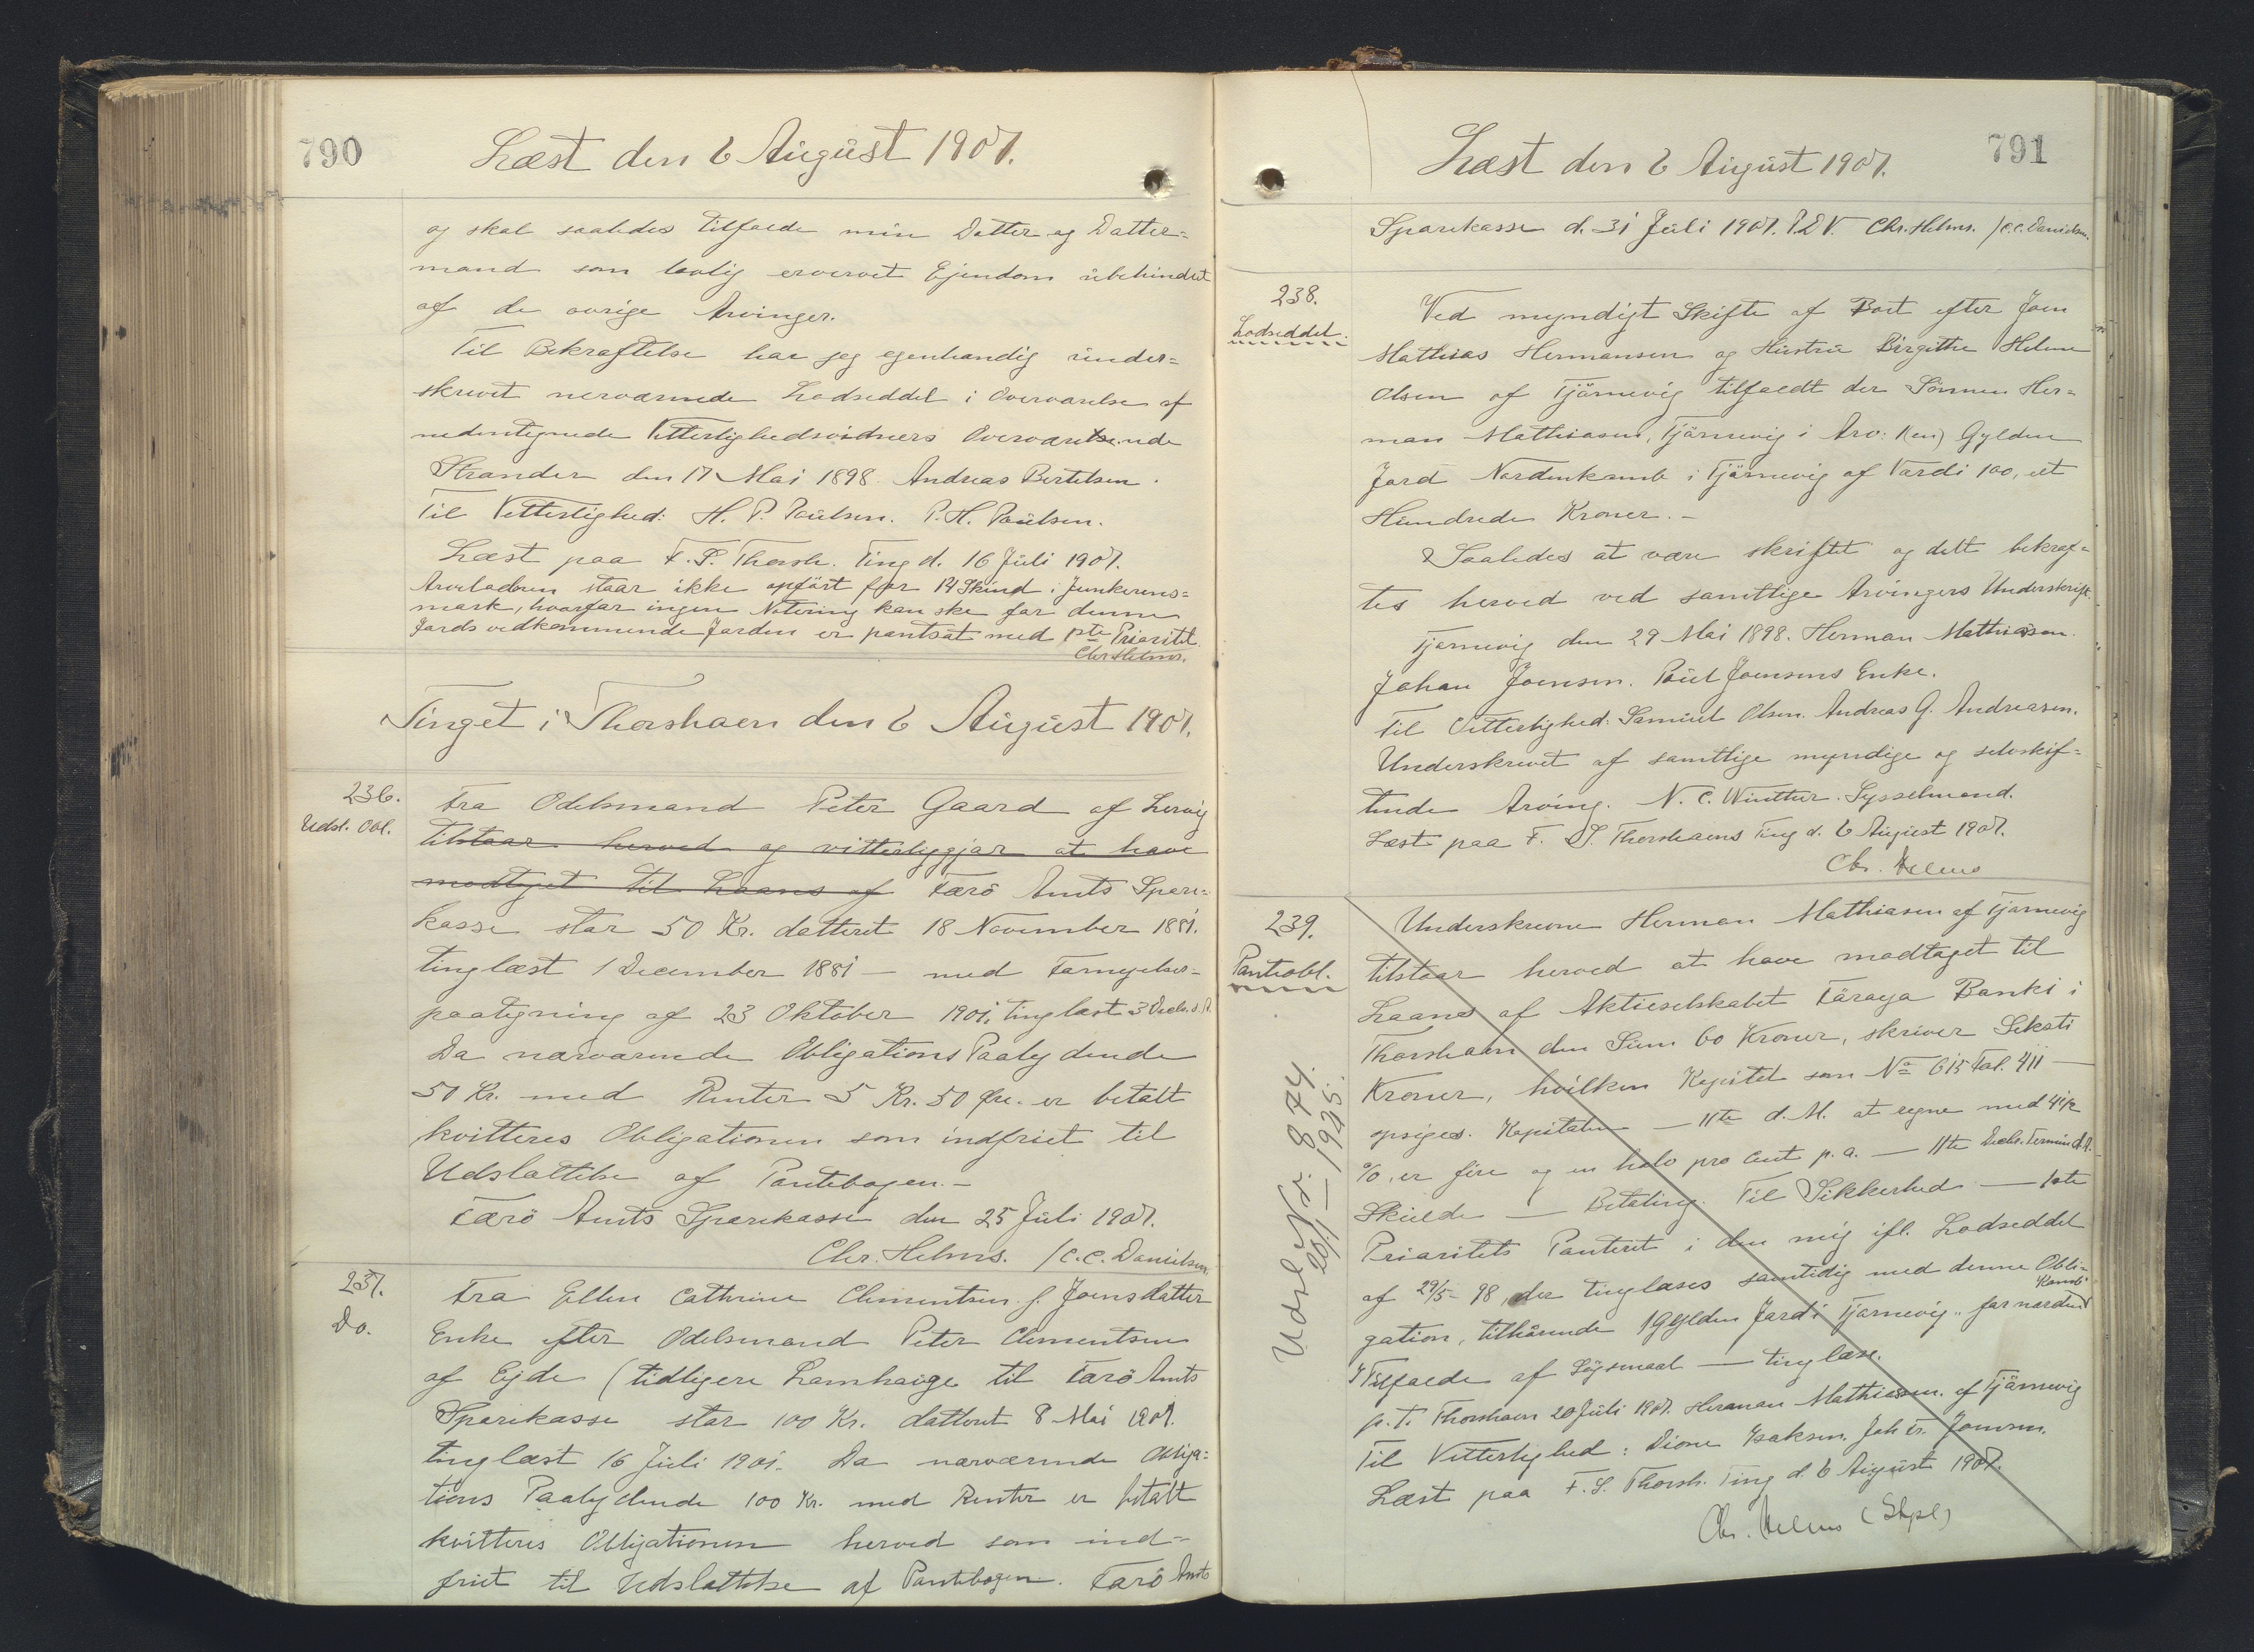 790
Læst den 6 August 1907.
og skal saaledes tilfalde min Datter og Datter=
mand som lovlig erværvet Ejendom übehindret
af de øvrige Arvinger.
Til Bekræftelse har jeg egenhændig under=
skrevet nærværende Lodseddel i Overværelse af
nedentegnede Vitterlighedsvidners Overværelse
Strander den 17 Mai 1898. Andreas Bertelsen.
Til Vitterlighed: H. P. Poulsen. P. H. Poulsen.
Læst paa F. S. Thorsh. Ting d. 16 Juli 1907.
Arveladeren staar ikke opført for 14 Skind i Junkerens=
mark, hvorfor ingen Notering kan ske for denne
Jords vedkommende Jorden er pantsat med 1ste Prioritet.
Chr Helms.
Tinget i Thorshavn den 6 August 1907.
236.
Udsl. Obl.
Fra Odelsmand Peter Gaard af Lervig
tilstaar herved og vitterliggjør at have
modtaget til Laans af Færö Amts Spare=
kasse stor 50 Kr. datteret 18 November 1881.
tinglæst 1 December 1881 — med Fornyelses=
paategning af 23 Oktober 1901, tinglæst 3 Decbr. s. A.
Da nærværende Obligations Paalydende
50 Kr. med Renter 5 Kr. 50 Øre. er betalt
kvitteres Obligationen som indfriet til
Udslættelse af Pantebogen.-
Færö Amts Sparekasse den 25 Juli 1907.
Chr. Helms. /C. C. Danielsen.
237.
Do.
Fra Ellen Cathrine Clementsen f. Joensdatter
Enke efter Odelsmand Peter Clementsen
af Ejde (tidligere Lamhauge til Færö Amts
Sparekasse stor 100 Kr. datteret 8 Mai 1901.
tinglæst 16 Juli 1901. Da nærværende Obliga=
tions Paalydende 100 Kr. med Renter er betalt
kvitteres Obligationen herved som ind=
friet til Udslættelse af Pantebogen. Færö Amts
791
Læst den 6 August 1907.
Sparekasse d. 31 Juli 1907. P. D. V. Chr. Helms. /C. C. Danielsen.
238.
Lodseddel.
Ved myndigt Skifte af Boet efter Joen
Mathias Hermansen og Hustru Birgithe Helene
Olsen af Tjörnevig tilfaldt der Sönnen Her=
man Mathiasen, Tjörnevig i Arv: 1(en) Gylden
Jord Nordenkamb i Tjörnevig af Værdi 100, et
Hundrede Kroner.-
Saaledes at være skriftet og dett bekræf=
tes herved ved samtlige Arvingers Underskrift.
Tjørnevig den 29 Mai 1898. Herman Mathiasen.
Johan Joensen. Poul Joensens Enke.
Til Vitterlighed: Samuel Olsen. Andreas G. Andreasen.
Underskrevet af samtlige myndige og selvskif=
tende Arving. N. C. Winther. Sysselmand.
Læst paa F. S. Thorshavns Ting d. 6 August 1907.
Chr. Helms
239.
Panteobl.
Udsl. Nr. 874.
25/1 — 1945.
Underskrevne Herman Mathiasen af Tjørnevig
tilstaar herved at have modtaget til
Laans af Aktieselskabet Föroya Banki i
Thorshavn den Sum 60 Kroner, skriver Seksti
Kroner, hvilken Kapital som No 615 Fol. 411 —
opsiges. Kapitalen — 11te d. M. at regne med 4 1/2
%, er fire og en halv pro Cent p. a. — 11te Decbr. Termin d. A.
Skulde — Betaling. Til Sikkerhed — 1ste
Prioritets Panteret i den mig ifl. Lodseddel
af 29/5- 98, der tinglæses samtidig med denne Obli=
gation, tilhørende 1 Gylden Jord i Tjørnevig „for norden Kamb"
I Tilfælde af Søgsmaal — tinglæse.
p. T. Thorshavn 20 Juli 1907. Herman Mathiasen. af Tjörnevig
Til Vitterlighed: Dione Isaksen. Joh. Fr. Joensen.
Læst paa F. S. Thorsh. Ting d. 6 August 1907.
Chr. Helms (Stpl)